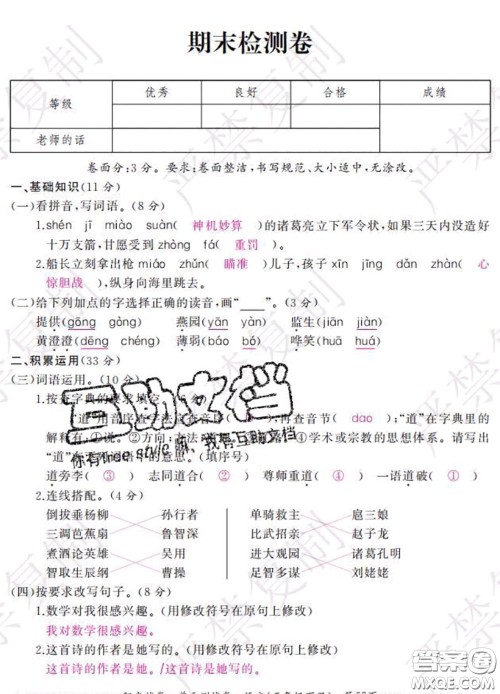 期末检测卷
等级 优秀 良好 合格 成绩
老师的话
卷面分:3分。要求:卷面整洁,书写规范、大小适中,无涂改。
一、基础知识(11分)
(一)看拼音,写词语。(8分)
1.shén jī miào suàn(神机妙算)的诸葛亮立下军令状,如果三天内没造好
十万支箭,甘愿受到zhòng fá(重罚)。
2.船长立刻拿出枪 miáo zhǔn(瞄准)儿子,孩子xīn jīng dǎn zhàn(心
惊胆战),纵身向海里跳去。
(二)给下列加点的字选择正确的读音,画“____”。(3分)
提供(gōng gòng) 燕园(yān yàn) 监生(jiān jiàn)
黄澄澄(dēng chéng) 薄弱(báo bó) 哗笑(huá huā)
二、积累运用(33分)
(三)词语运用。(10分)
1.按查字典的要求填空。
“道”用音序查字法
再查音节(dao);“道”在字典里的
解释有:①说。②方向
④学术或宗教的思想体系。请写出
“道”
(填序号)
道旁李(③) 志同道合(②) 尊师重道(④) 一语道破(①)
2.连线搭配。(4分)
倒拔垂杨柳 孙行者 单骑救主 扈三娘
三调芭蕉扇 鲁智深 比武招亲 赵子龙
煮酒论英雄 吴用 进大观园 诸葛孔明
智取生辰纲 曹操 足智多谋 刘姥姥
(四)按要求改写句子。(8分)
1.数学对我很感兴趣。(用修改符号在原句上修改)
我对数学很感兴趣。
2.这首诗的作者是她写的。(用修改符号在原句上修改)
这首诗的作者是她。/这首诗是她写的。
严禁复制
互助文档
你有free style 嘛、我有互助文档
答案圈
MXQE.COM